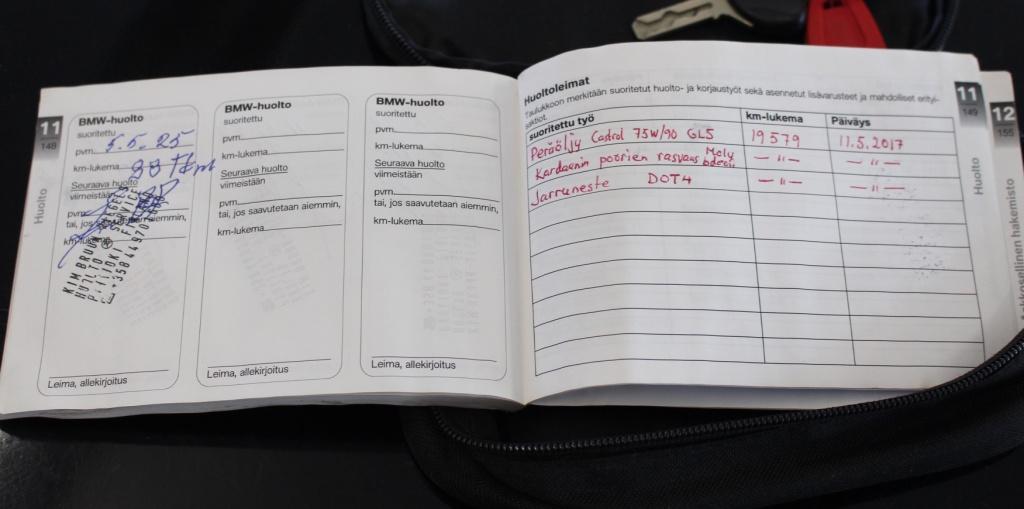 11
148
Huolto
BMW-huolto
suoritettu
pvm. 5.5.25
km-lukema
Seuraava huolto
viimeistään
pvm.
tai, jos saavutetaan aiemmin,
km-lukema
KIM BRUUN
HUOLTO SERVICE
Leima, allekirjoitus
BMW-huolto
suoritettu
pvm.
km-lukema
Seuraava huolto
viimeistään
pvm.
tai, jos saavutetaan aiemmin,
km-lukema
Leima, allekirjoitus
BMW-huolto
suoritettu
pvm.
km-lukema
Seuraava huolto
viimeistään
pvm.
tai, jos saavutetaan aiemmin,
km-lukema
Leima, allekirjoitus
Huoltoleimat
Taulukkoon merkitään suoritetut huolto- ja korjaustyöt sekä asennetut lisävarusteet ja mahdolliset erityi-
suoritettu työ km-lukema Päiväys
Peräöljy Castrol 75W/90 GL5 19579 11.5.2017
Kardaanin poorien rasvaus Moly — " — — " —
Jarruneste DOT4 — " — — " —
11
149
Huolto
12
155
kkosellinen hakemisto